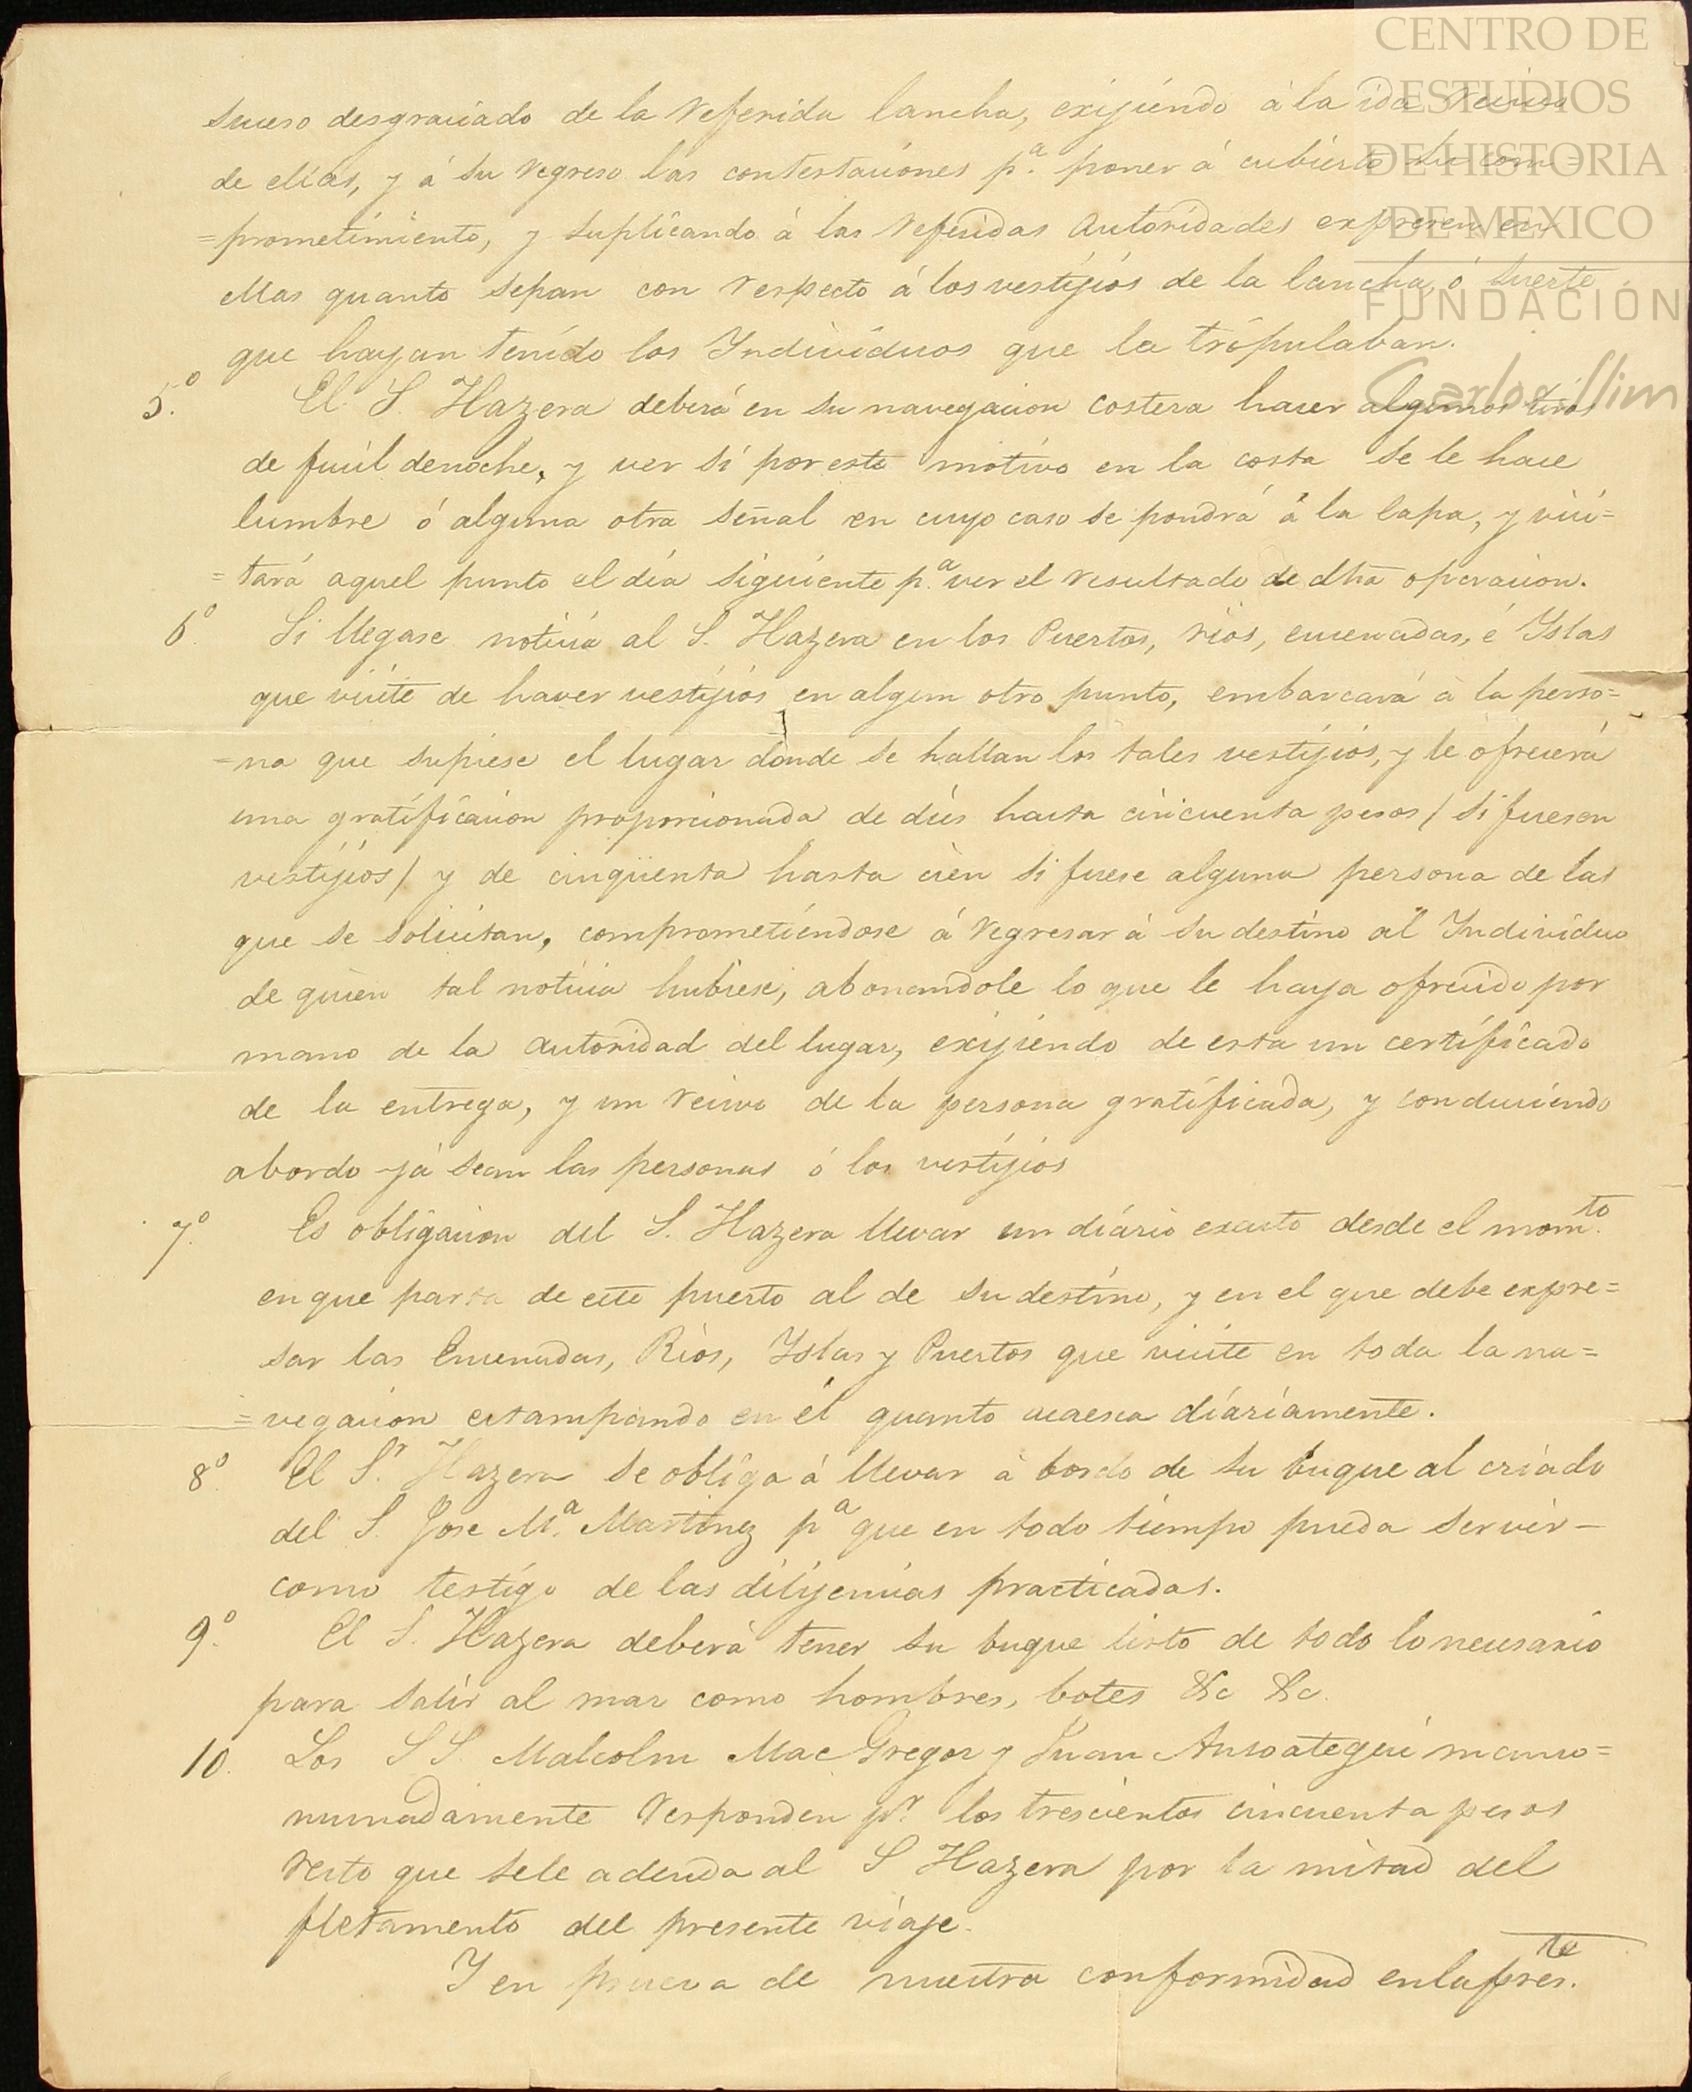 CENTRO DE
ESTUDIOS
DE HISTORIA
DE MEXICO
FUNDACIÓN
Carlos Slim
suceso desgraciado de la referida lancha, exijiendo á la ida recivo
de ellas, y á su regreso las contestaciones p.ª poner á cubierto su com=
=prometimiento, y suplicando á las referidas Autoridades expresen en
ellas quanto sepan con respecto á los vestijios de la lancha, ó suerte
que hayan tenido los Individuos que la tripulaban.
5.º El S. Hazera deberá en su navegacion costera hacer algunos tiros
de fucil de noche, y ver si por este motivo en la costa se le hace
lumbre ó alguna otra señal en cuyo caso se pondrá á la capa, y vici=
=tará aquel punto el día siguiente p.ª ver el resultado de dha operacion.
6.º Si llegase noticia al S. Hazera en los Puertos, rios, encenadas, é Yslas
que vicite de haver vestijios en algun otro punto, embarcará á la perso=
=na que supiese el lugar donde se hallan los tales vestijios, y le ofrecerá
una gratificacion proporcionada de dies hasta cincuenta pesos / si fuesen
vestijios / y de cinqüenta hasta cien si fuese alguna persona de las
que se solicitan, comprometiéndose á regresar á su destino al Individuo
de quien tal noticia hubiese, abonandole lo que le haya ofrecido por
mano de la autoridad del lugar, exijiendo de esta un certificado
de la entrega, y un recivo de la persona gratificada, y conduciendo
abordo yá sean las personas ó los vestijios
7.º Es obligacion del S. Hazera llevar un diário exacto desde el mom.to
en que parta de este puerto al de su destino, y en el que debe expre=
sar las Encenadas, Rios, Yslas y Puertos que vicite en toda la na=
=vegacion estampando en él quanto acaesca diáriamente.
8.º El S.r Hazera se obliga á llevar á bordo de su buque al criado
del S. Jose M.ª Martinez p.ª que en todo tiempo pueda servir-
como testigo de las dilijencias practicadas.
9.º El S. Hazera deberá tener su buque listo de todo lo necesario
para salir al mar como hombres, botes &c &c.
10. Los S S. Malcolm MacGregor y Juan Ansoategui manco=
munadamente responden p.r los trescientos cincuenta pesos
resto que sele adeuda al S Hazera por la mitad del
fletamento del presente viaje.
Y en prueva de nuestra conformidad en la pres.te